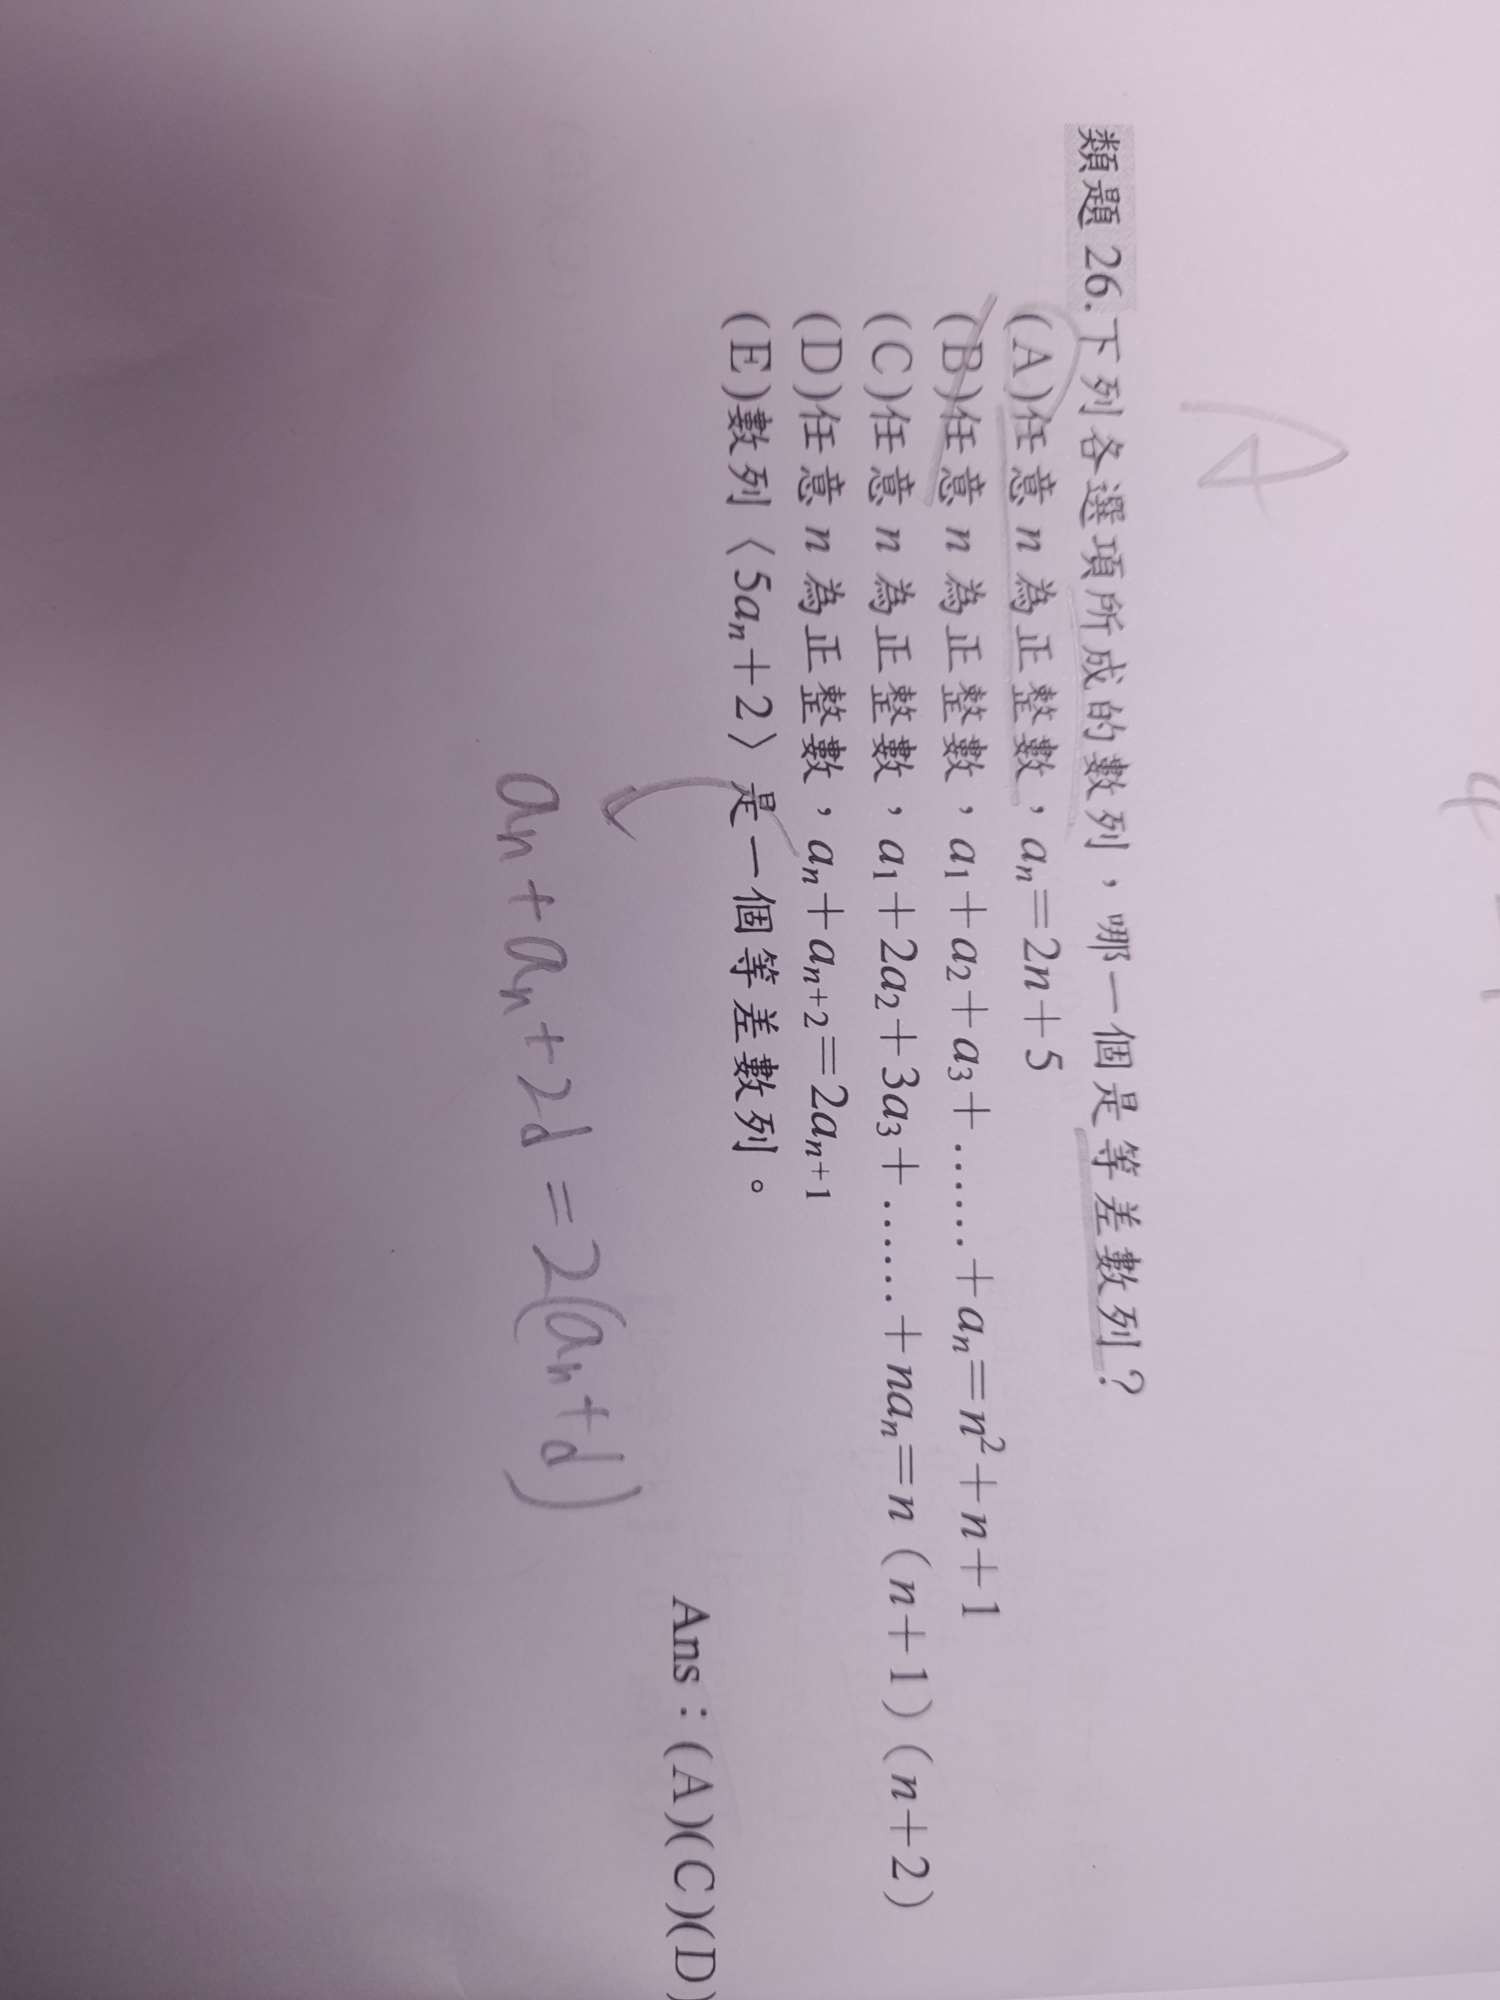 類題 26. 下列各選項所成的數列，哪一個是等差數列？
(A)任意 n 為正整數，aₙ＝2n＋5
(B)任意 n 為正整數，a₁＋a₂＋a₃＋……＋aₙ＝n²＋n＋1
(C)任意 n 為正整數，a₁＋2a₂＋3a₃＋……＋naₙ＝n（n＋1）（n＋2）
(D)任意 n 為正整數，aₙ＋aₙ₊₂＝2aₙ₊₁
(E)數列〈5aₙ＋2〉是一個等差數列。
aₙ + aₙ + 2d = 2(aₙ + d)
Ans：(A)(C)(D)